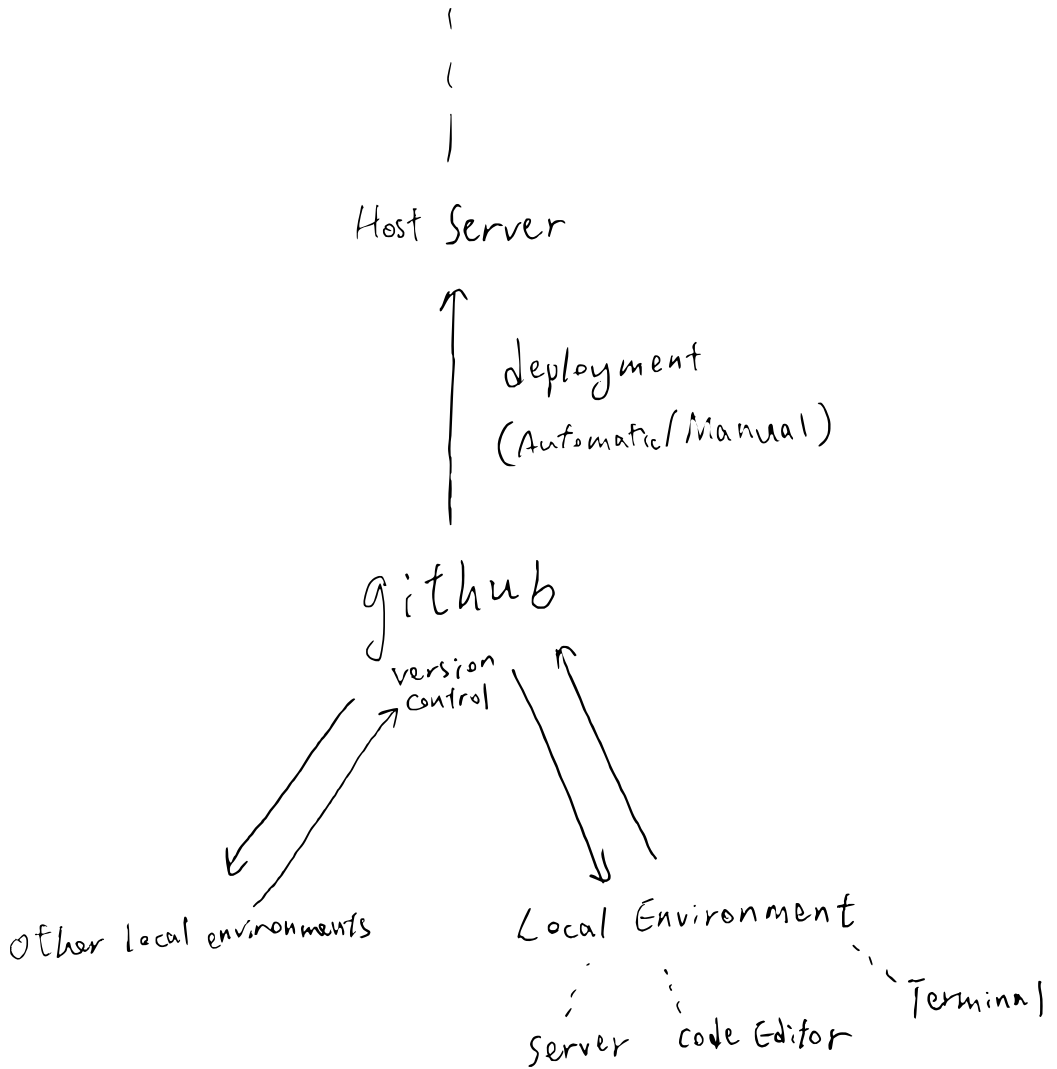 Host Server
deployment
(Automatic/Manual)
github
version
control
Other local environments
Local Environment
Terminal
Server
Code Editor